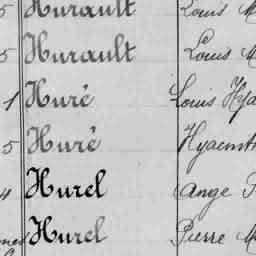 5 Hurault Louis M
5 Hurault Louis M
1 Huré Louis Hya
5 Huré Hyacinth
4 Hurel Ange
Hurel Pierre M